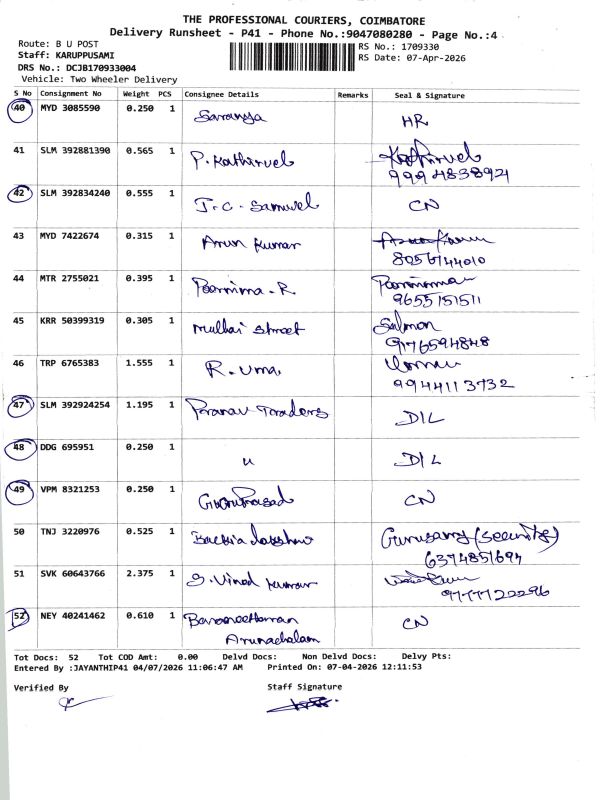 THE PROFESSIONAL COURIERS, COIMBATORE
Delivery Runsheet - P41 - Phone No.:9047080280 - Page No.:4
Route: B U POST
RS No.: 1709330
Staff: KARUPPUSAMI
RS Date: 07-Apr-2026
DRS No.: DCJB170933004
Vehicle: Two Wheeler Delivery
S No Consignment No Weight PCS Consignee Details Remarks Seal & Signature
40 MYD 3085590 0.250 1 Saranya HR
41 SLM 392881390 0.565 1 P. Kathirvel Kathirvel
9994838921
42 SLM 392834240 0.555 1 J.C. Samuel CN
43 MYD 7422674 0.315 1 Arun Kumar Arun Kumar
8056744010
44 MTR 2755021 0.395 1 Poornima.R Poornima
9655151511
45 KRR 50399319 0.305 1 Mullai Street Salmon
9176594848
46 TRP 6765383 1.555 1 R. Uma
9944113732
47 SLM 392924254 1.195 1 Pranav Traders D/L
48 DDG 695951 0.250 1 u D/L
49 VPM 8321253 0.250 1 GuruPrasad CN
50 TNJ 3220976 0.525 1 Gurusamy (Security)
6374851694
51 SVK 60643766 2.375 1 S. Vinod Kumar
9777722296
52 NEY 40241462 0.610 1 CN
Arunachalam
Tot Docs: 52 Tot COD Amt: 0.00 Delvd Docs: Non Delvd Docs: Delvy Pts:
Entered By :JAYANTHIP41 04/07/2026 11:06:47 AM Printed On: 07-04-2026 12:11:53
Verified By Staff Signature